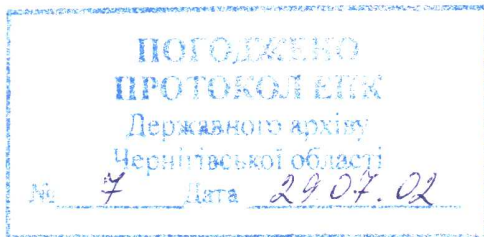 ПОГОДЖЕНО
ПРОТОКОЛ ЕПК
Державного архіву
Чернігівської області
№ 7 Дата 29.07.02